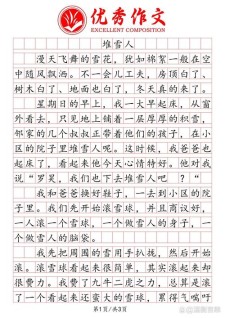 优秀作文
EXCELLENT COMPOSITION
堆雪人
漫天飞舞的雪花，犹如棉絮一般在空
中随风飘洒。不一会儿工夫，房顶白了、
树木白了、地面也白了，冬天真的来了。
星期日的早上，我一大早起床，从窗
外看去，只见地上铺着一层厚厚的积雪，
邻家的几个叔叔正带着他们的孩子，在小
区的院子里堆雪人呢。这时候，我爸爸也
起床了，看起来他今天心情特好。他对我
说“罗昊，我们也下去堆雪人吧？”
我和爸爸换好鞋子，一去到小区的院
子里。我们先开始滚雪球，并且商议好，
一人滚一个雪球，一个做雪人的身子，一
个做雪人的脑袋。
我先把周围的雪用手扒拢，然后开始
滚。滚雪球看起来很简单，其实滚起来却
很费力。我费了九牛二虎之力，总算是滚
了一个看起来还蛮大的雪球，累得气喘吁
第1页/共3页